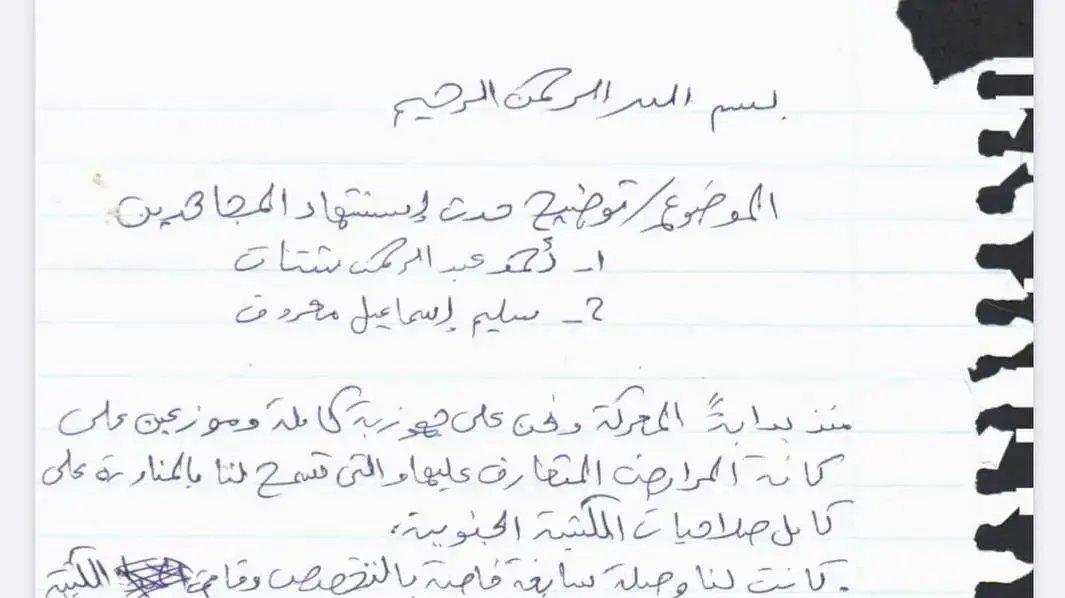 بسم الله الرحمن الرحيم
الموضوع/ توضيح حدث إستشهاد المجاهدين
1- أحمد عبد الرحمن شتات
2- سليم إسماعيل معروف
منذ بدايةً المعركة ونحن على جهوزية كاملة وموزعين على
كافة المرابض المتعارف عليها والتي تسمح لنا بالمناورة على
كامل صلاحيات الكتيبة الجنوبية،
. كانت لنا وصلة سابقة خاصة بالتخصص وقامت الكتيبة